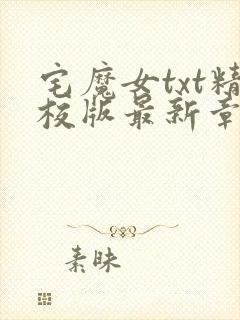 宅魔女txt精
校版最新章
素昧